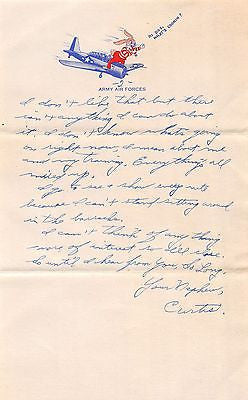 HI PAL
WHAT'S COOKIN'?
-2-
ARMY AIR FORCES
I don't like that but there
isn't anything I can do about
it. I don't know what's going
on right now, I mean about me
and my training. Everything's all
mixed up.
I go to see a show every nite
because I can't stand sitting around
in the barracks.
I can't think of any thing
more of interest so I'll close.
So until I hear from You, So Long.
Your Nephew,
Curtis.